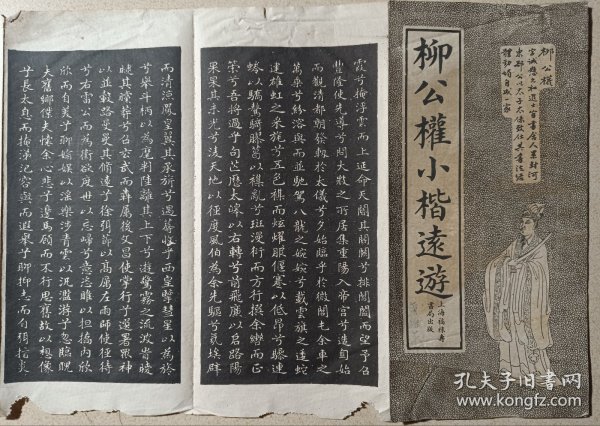 柳公權
官誠懸元和進士
東郡公太子太保致仕其書法結
體勁媚自成一家
柳公權小楷遠遊
上海福祿壽
書局出版
霞兮掩浮雲而上延命天閽其開關兮排閶闔而望予召
豐隆使先導兮問大微之所居集重陽入帝宮兮造旬始
而觀清都朝發軔於太儀兮夕始臨乎於微閭屯余車之
萬乘兮紛溶與而並馳駕八龍之婉婉兮載雲旗之逶蛇
建雄虹之采旄兮五色雜而炫耀服偃蹇以低昂兮驂連
蜷以驕驁騎膠葛以雜亂兮斑漫衍而方行撰余轡而正
策兮吾將過乎句芒歷太皓以右轉兮前飛廉以啟路陽
杲杲其未光兮凌天地以徑度風伯為余先驅兮氛埃辟
而清涼鳳皇翼其承旂兮遇蓐收乎西皇擥彗星以為旍
兮舉斗柄以為麾叛陸離其上下兮遊驚霧之流波旹曖
曃其曭莽兮召玄武而奔屬後文昌使掌行兮選署眾神
以並轂路曼曼其脩遠兮徐弭節以高厲左雨師使徑待
兮右雷公而為衛欲度世以忘歸兮意恣睢以担撟內欣
欣而自美兮聊媮娛以淫樂涉青雲以汎濫游兮忽臨睨
夫舊鄉僕夫懷余心悲兮邊馬顧而不行思舊故以想像
兮長太息而掩涕汜容與而遐舉兮聊抑志而自弭指炎
孔夫子旧书网
www.kongfz.com